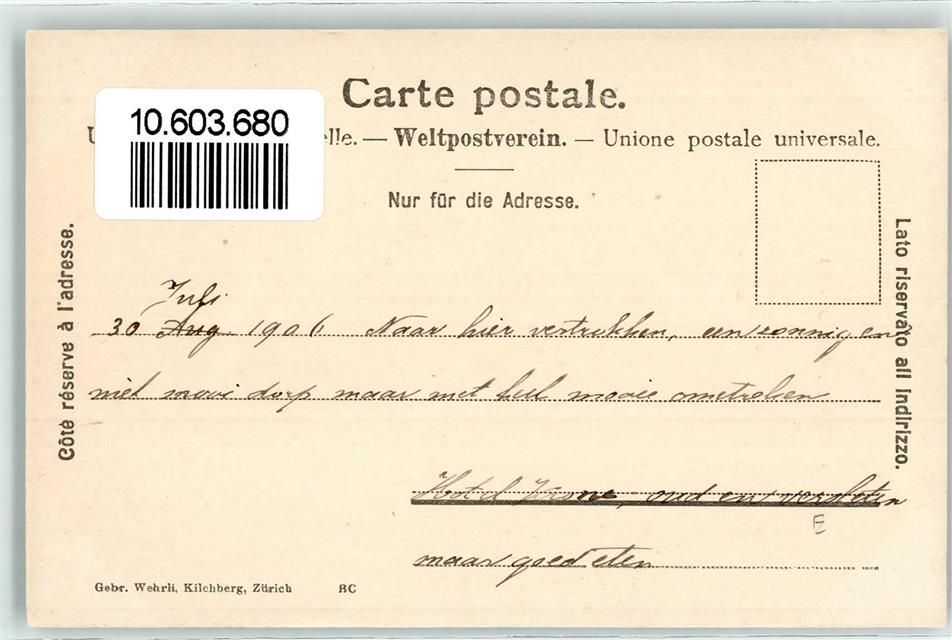 Carte postale.
10.603.680
U lle. — Weltpostverein. — Unione postale universale.
Nur für die Adresse.
Côté réservé à l'adresse.
Lato riservato all indirizzo.
Juli
30 Aug 1906 Naar hier vertrekken, een zonnig en
niet mooi dorp maar met heel mooie omstreken
Hotel Krone, oud en versleten
maar goed eten
E
Gebr. Wehrli, Kilchberg, Zürich BC